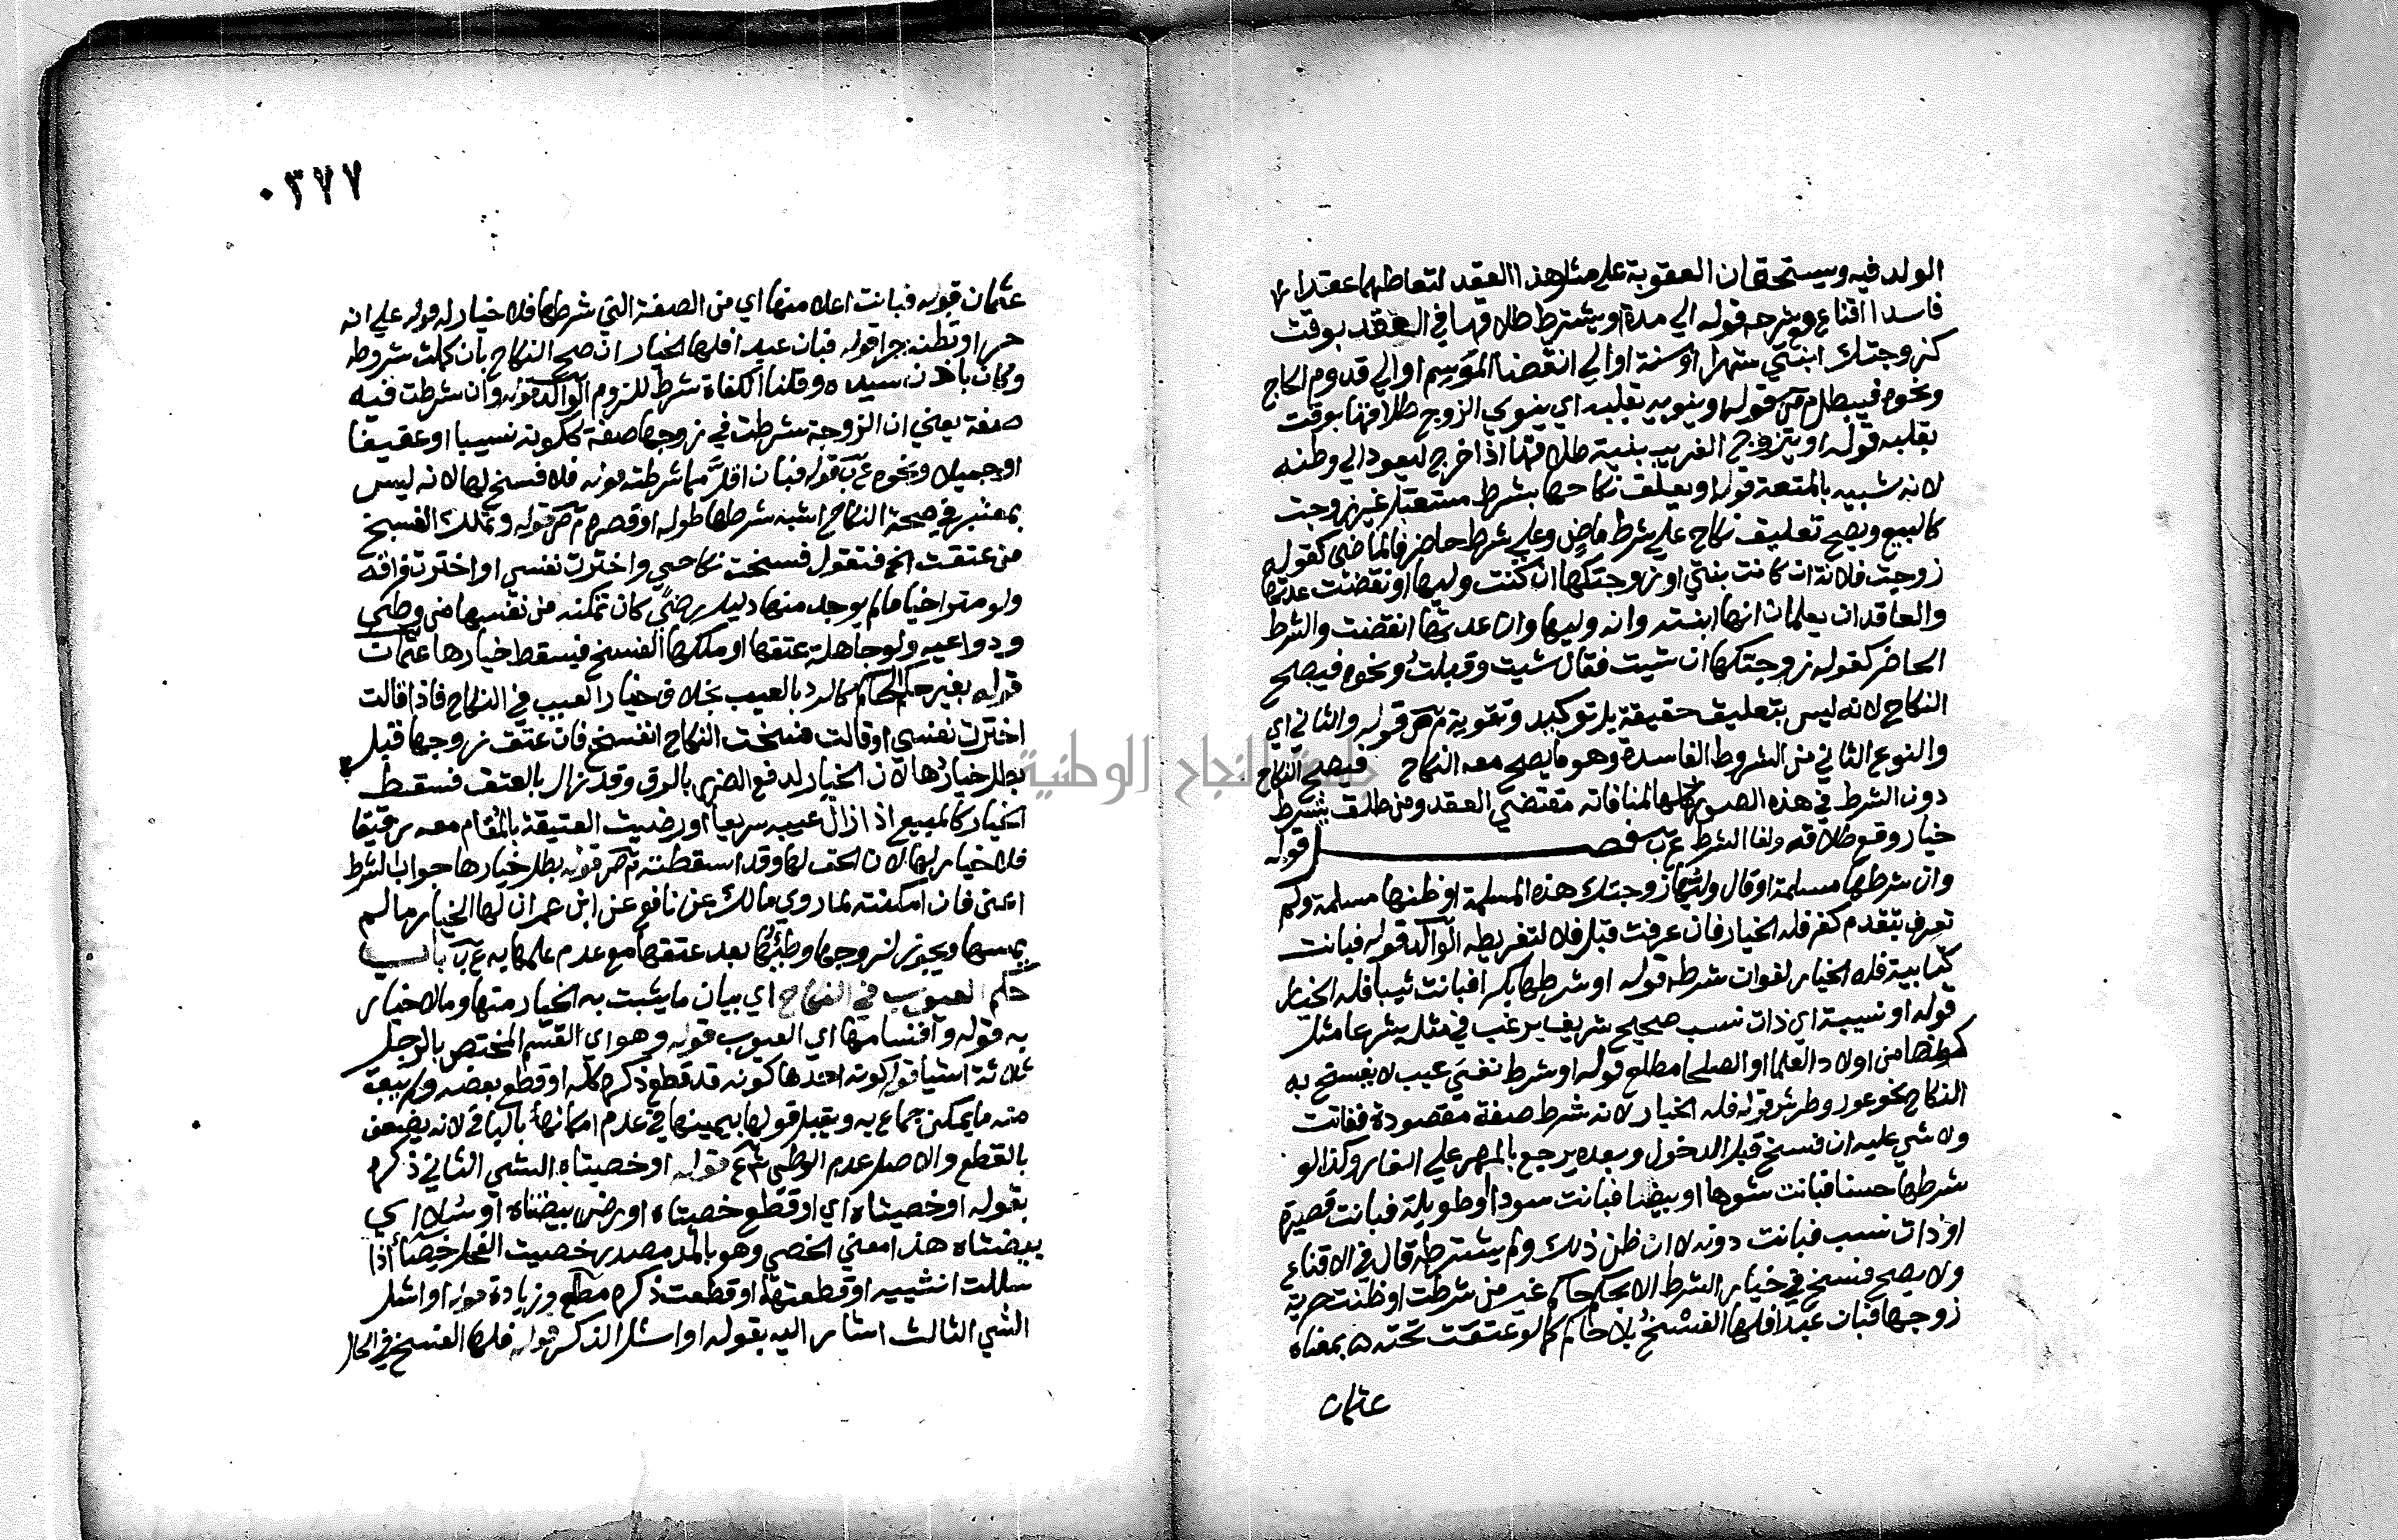 الولد فيه ويستحقان العقوبة على مثل هذا العقد لتعاطيهما عقدا
فاسدا اقناع وشرحه قوله الي مدة او يشترط طلاقها في العقد بوقت
كزوجتك ابنتي شهرا او سنة او الي انقضا الموسم او الي قدوم الحاج
ونحوه فيبطل م ص قوله او ينويه بقلبه اي ينوي الزوج طلاقها بوقت
بقلبه قوله او يتزوج الغريب بنية طلاقها اذا خرج ليعود الي وطنه
لانه شبيه بالمتعة قوله او يعلق نكاحها بشرط مستقبل غير زوجت
كالبيع ويصح تعليق نكاح علي شرط ماض وعلي شرط حاضر فالماضي كقوله
زوجت فلانة ان كانت بنتي او زوجتكها ان كنت وليها او نقضت عدتها
والعاقدان يعلمان انها ابنته وانه وليها وان عدتها انقضت والشرط
الحاضر كقوله زوجتكها ان شيت فقال شيت وقبلت ونحوه فيصح
النكاح لانه ليس بتعليق حقيقة بل توكيد وتقوية م ص قوله والثاني اي
والنوع الثاني من الشروط الفاسدة وهو ما يصح معه النكاح فيصح النكاح
دون الشرط في هذه الصور كلها لمنافاته مقتضي العقد ومن طلق بشرط
خيار وقع طلاقه ولغا الشرط ع ب فصل قوله
وان شرطها مسلمة او قال وليها زوجتك هذه المسلمة او ظنها مسلمة ولم
تعرف بتقدم كفر فله الخيار فان عرفت قبل فلا لتفريطه الوالد قوله فبانت
كتابية فله الخيار لفوات شرطه قوله او شرطها بكرا فبانت ثيبا فله الخيار
قوله او نسيبة اي ذات نسب صحيح شريف يرغب في مثله شرعا مثل
كونها من اولاد العلما او الصلحا مطلع قوله او شرط نفي عيب لا يفسخ به
النكاح نحو عور وطرش قوله فله الخيار لانه شرط صفة مقصودة ففاتت
ولا شي عليه ان فسخ قبل الدخول وبعده يرجع بالمهر علي الغار وكذا لو
شرطها حسنا فبانت شوها او بيضا فبانت سودا او طويلة فبانت قصيرة
او ذات نسب فبانت دونه لا ان ظن ذلك ولم يشترطه قال في الاقناع
ولا يصح فسخ في خيار الشرط الا بحكم حاكم غير من شرطت او ظنت حرية
زوجها فبان عبدا فلها الفسخ بلا حاكم كما لو عتقت تحته ه بمعناه
عثمان
٠٣٧٧
عثمان قوله فبانت اعلا منها اي من الصفة التي شرطها فلا خيار له قوله علي انه
حر او تظنه حرا قوله فبان عبدا فلها الخيار ان صح النكاح بان كملت شروطه
وكان باذن سيده وقلنا الكفاة شرط للزوم الوالد قوله وان شرطت فيه
صفة يعني ان الزوجة شرطت في زوجها صفة ككونه نسيبا او عفيفا
او جميلا ونحوه ع ب قوله فبان اقل مما شرطته قوله فلا فسخ لها لانه ليس
بمعتبر في صحة النكاح اشبه شرطها طوله او قصره م ص قوله وتملك الفسخ
من عتقت الخ فتقول فسخت نكاحي واخترت نفسي او اخترت فراقه
ولو متراخيا ما لم يوجد منها دليل رضي كان تمكنه من نفسها من وطي
ودواعيه ولو جاهلة عتقها او ملكها الفسخ فيسقط خيارها عثمان
قوله بغير حكم الحاكم كالرد بالعيب بخلاف خيار العيب في النكاح فاذا قالت
اخترت نفسي او قالت فسخت النكاح انفسخ فان عتق زوجها قبل
بطل خيارها لان الخيار لدفع الضرر بالرق وقد زال بالعتق فسقط
الخيار كالمبيع اذا زال عيبه سريعا او رضيت العتيقة بالمقام معه رقيقا
فلا خيار لها لان الحق لها وقد اسقطته م ص قوله بطل خيارها جواب الشرط
اعني فان امكنته لما روي مالك عن نافع عن ابن عمر ان لها الخيار ما لم
يمسها ويجوز لزوجها وطئها بعد عتقها مع عدم علمها به ع ب باب
حكم العيوب في النكاح اي بيان ما يثبت به الخيار منها وما لا خيار
به قوله واقسامها اي العيوب قوله وهو اي القسم المختص بالرجل
ثلاثة اشيا قوله كونه احدها كونه قد قطع ذكره كله او قطع بعضه ولم يبق
منه ما يمكن جماع به ويقبل قولها بيمينها في عدم امكانه بالباقي لانه يضعف
بالقطع والاصل عدم الوطي ش ع قوله او خصيتاه الشي الثاني ذكره
بقوله او خصيتاه اي او قطع خصيتاه او رض بيضتاه او سلا اي
بيضتاه هذا معني الخصي وهو بالمد مصدر خصيت الفحل خصاء اذا
سللت انثييه او قطعتها او قطعت ذكره مطلع وزيادة قوله او اشل
الشي الثالث اشار اليه بقوله او اشل الذكر قوله فلها الفسخ في الحال
جامعة النجاح الوطنية